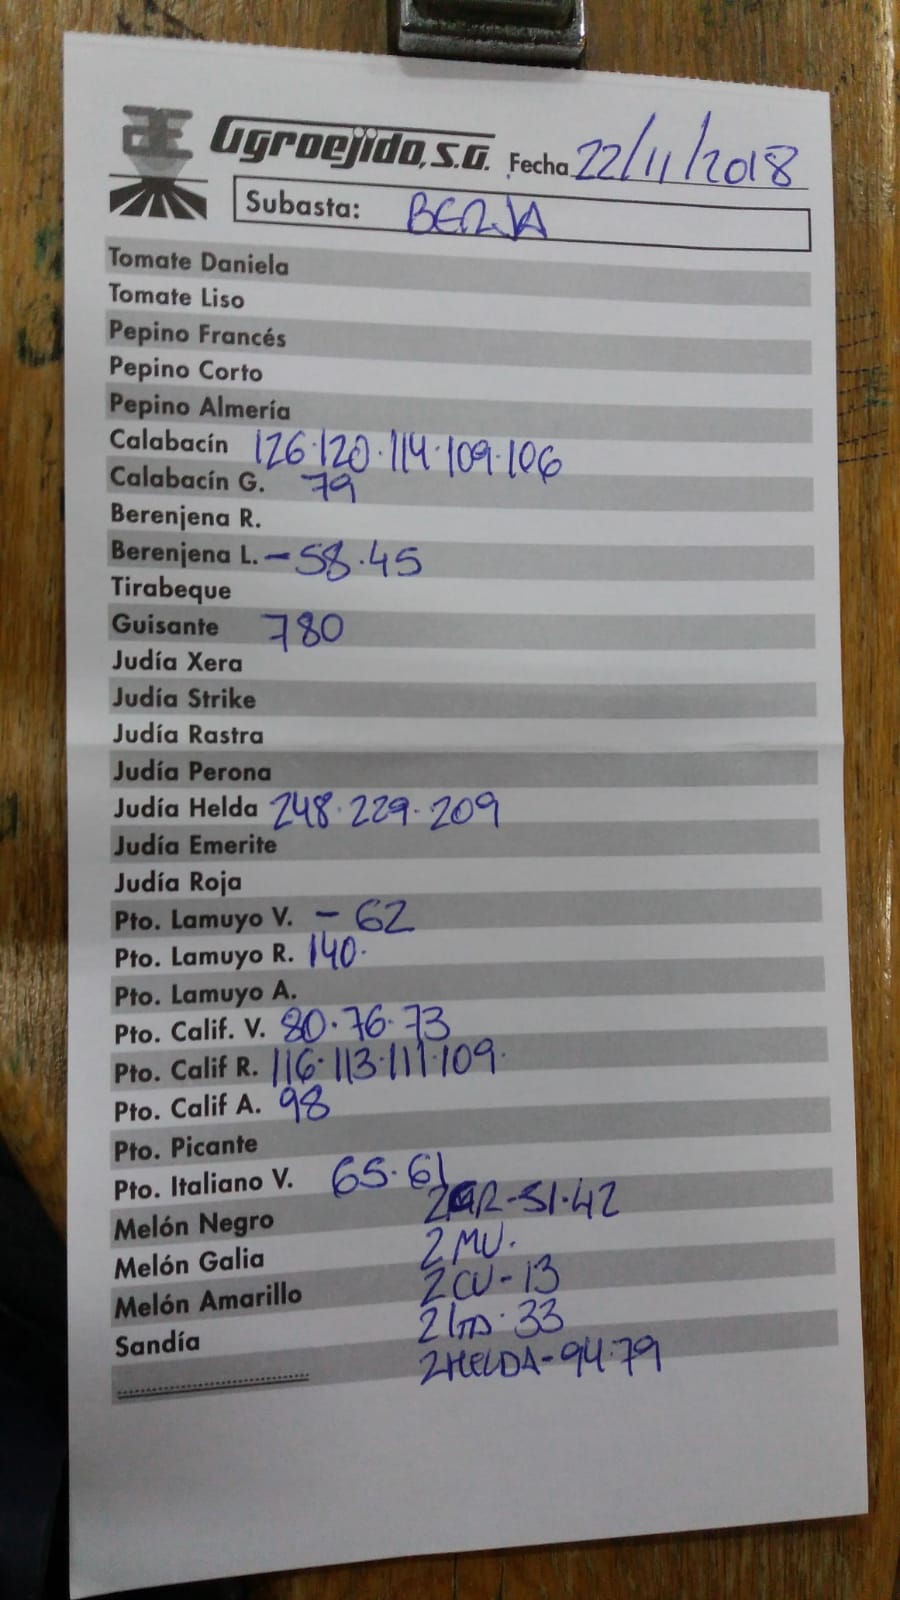 Agroejido, S.A. Fecha 22/11/2018
Subasta: BERJA
Tomate Daniela
Tomate Liso
Pepino Francés
Pepino Corto
Pepino Almería
Calabacín 126·120·114·109·106
Calabacín G. 79
Berenjena R.
Berenjena L. - 58·45
Tirabeque
Guisante 780
Judía Xera
Judía Strike
Judía Rastra
Judía Perona
Judía Helda 248·229·209
Judía Emerite
Judía Roja
Pto. Lamuyo V. - 62
Pto. Lamuyo R. 140·
Pto. Lamuyo A.
Pto. Calif. V. 80·76·73
Pto. Calif R. 116·113·111·109·
Pto. Calif A. 98
Pto. Picante
Pto. Italiano V. 65·61
Melón Negro 2GR-51·42
Melón Galia 2MU.
Melón Amarillo 2CU-13
Sandía 2ITA·33
2HELDA-94·79